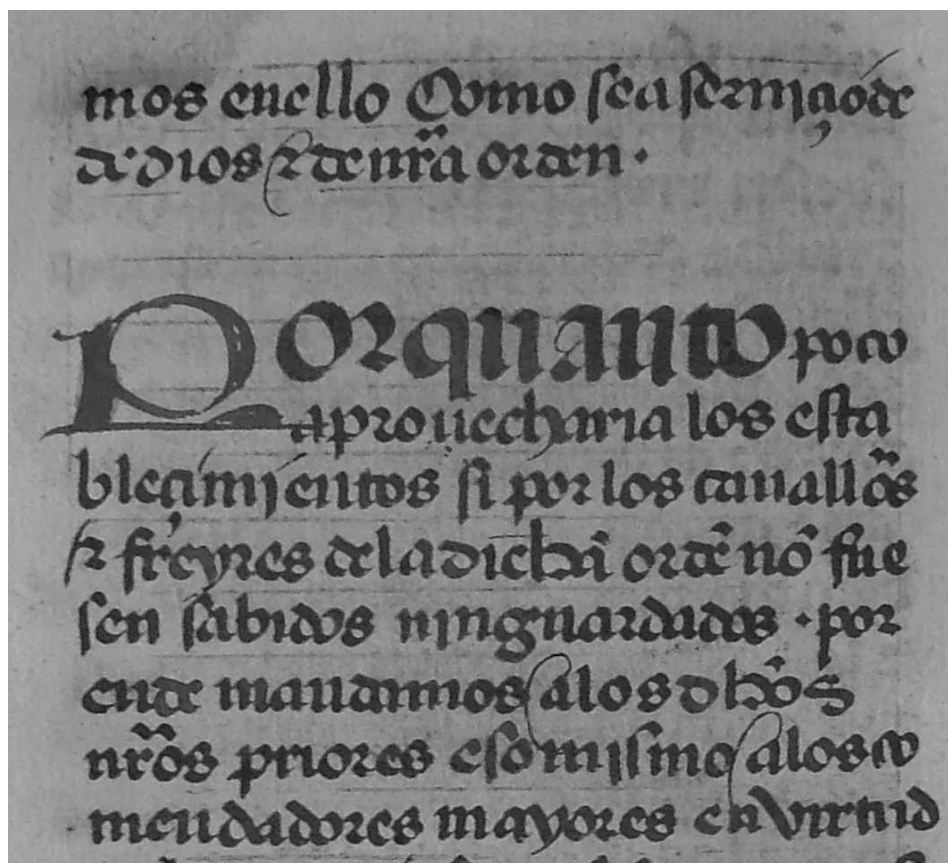 mos enello Como sea seruiçio de
de dios & de nr̃a orden.
Porquanto poco
aprouecharia los esta
bleçimientos si por los cauallõs
& freyres dela dicha ordẽ nõ fue
sen sabidos ninguardados . por
ende mandamos alos dhõs
nr̃os priores esomismo alos co
mendadores mayores en virtud